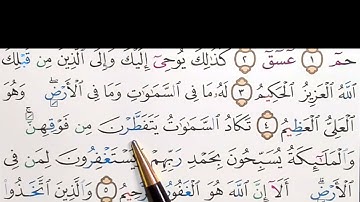 حمٓ ١ عٓسٓقٓ ٢ كَذَٰلِكَ يُوحِىٓ إِلَيْكَ وَإِلَى ٱلَّذِينَ مِن قَبْلِكَ
ٱللَّهُ ٱلْعَزِيزُ ٱلْحَكِيمُ ٣ لَهُۥ مَا فِى ٱلسَّمَٰوَٰتِ وَمَا فِى ٱلْأَرْضِ ۖ وَهُوَ
ٱلْعَلِىُّ ٱلْعَظِيمُ ٤ تَكَادُ ٱلسَّمَٰوَٰتُ يَتَفَطَّرْنَ مِن فَوْقِهِنَّ ۚ
وَٱلْمَلَٰٓئِكَةُ يُسَبِّحُونَ بِحَمْدِ رَبِّهِمْ وَيَسْتَغْفِرُونَ لِمَن فِى
ٱلْأَرْضِ ۗ أَلَآ إِنَّ ٱللَّهَ هُوَ ٱلْغَفُورُ ٱلرَّحِيمُ ٥ وَٱلَّذِينَ ٱتَّخَذُوا۟